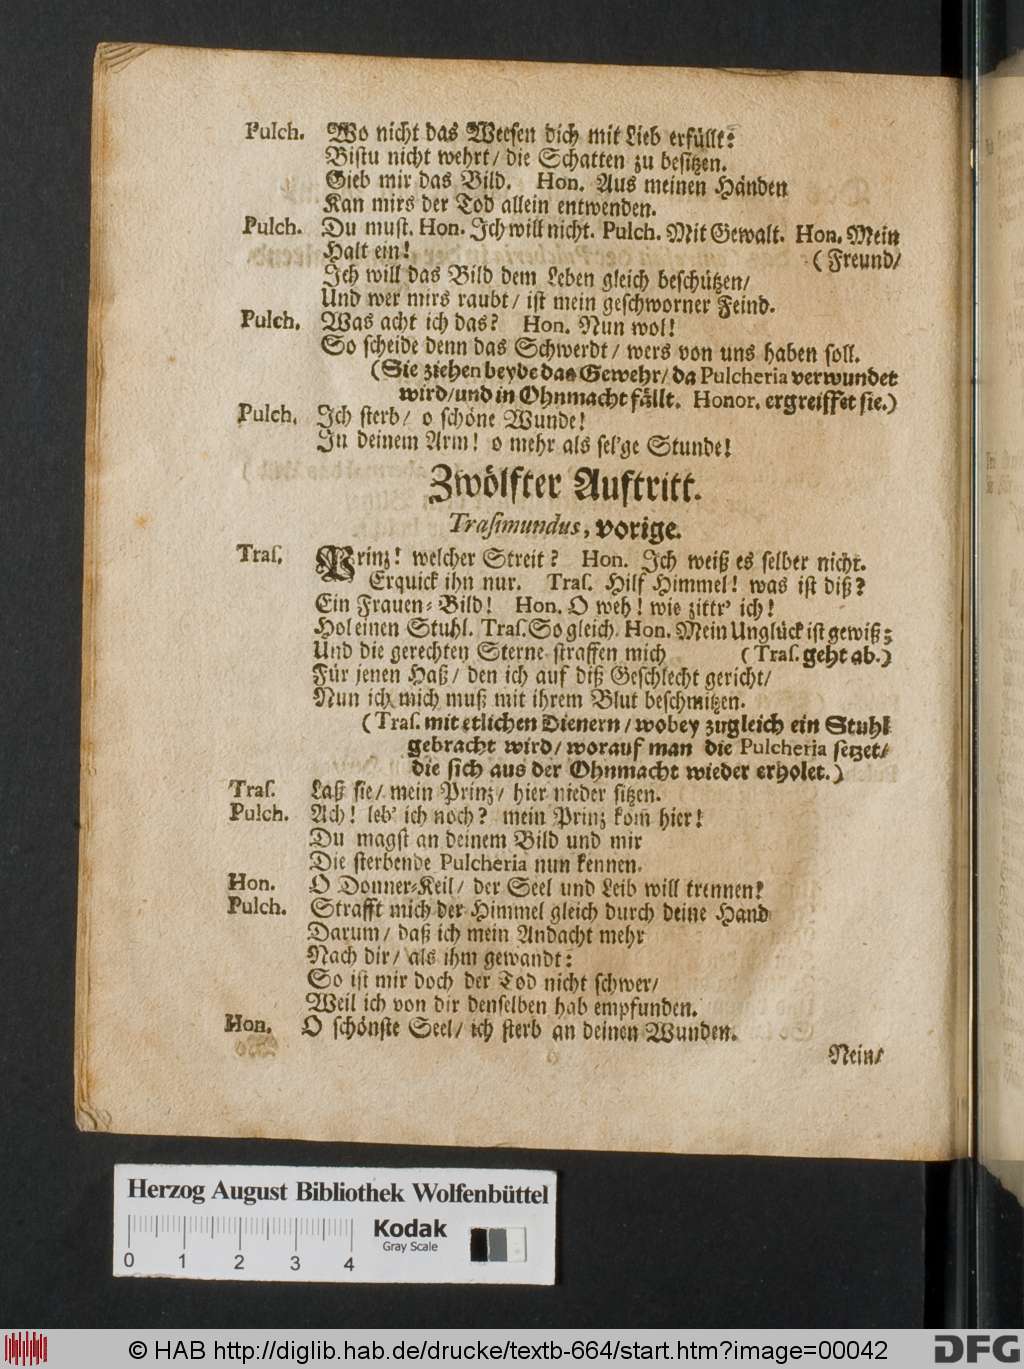 Pulch. Wo nicht das Weesen dich mit Lieb erfüllt:
Bistu nicht wehrt/ die Schatten zu besitzen.
Gieb mir das Bild. Hon. Aus meinen Händen
Kan mirs der Tod allein entwenden.
Pulch. Du must. Hon. Ich will nicht. Pulch. Mit Gewalt. Hon. Mein
Halt ein! (Freund/
Ich will das Bild dem Leben gleich beschützen/
Und wer mirs raubt/ ist mein geschworner Feind.
Pulch. Was acht ich das? Hon. Nun wol!
So scheide denn das Schwerdt/ wers von uns haben soll.
(Sie ziehen beyde das Gewehr/ da Pulcheria verwundet
wird/ und in Ohnmacht fällt. Honor. ergreiffet sie.)
Pulch. Ich sterb/ o schöne Wunde!
In deinem Arm! o mehr als sel'ge Stunde!
Zwölfter Auftritt.
Trasimundus, vorige.
Tras. Prinz! welcher Streit? Hon. Ich weiß es selber nicht.
Erquick ihn nur. Tras. Hilf Himmel! was ist diß?
Ein Frauen-Bild! Hon. O weh! wie zittr' ich!
Hol einen Stuhl. Tras. So gleich. Hon. Mein Unglück ist gewiß;
Und die gerechten Sterne straffen mich (Tras. geht ab.)
Für jenen Haß/ den ich auf diß Geschlecht gericht/
Nun ich mich muß mit ihrem Blut beschmitzen.
(Tras. mit etlichen Dienern/ wobey zugleich ein Stuhl
gebracht wird/ worauf man die Pulcheria setzet/
die sich aus der Ohnmacht wieder erholet.)
Tras. Laß sie/ mein Prinz/ hier nieder sitzen.
Pulch. Ach! leb' ich noch? mein Prinz kom̃ hier!
Du magst an deinem Bild und mir
Die sterbende Pulcheria nun kennen.
Hon. O Donner-Keil/ der Seel und Leib will trennen!
Pulch. Strafft mich der Himmel gleich durch deine Hand
Darum/ daß ich mein Andacht mehr
Nach dir/ als ihm gewandt:
So ist mir doch der Tod nicht schwer/
Weil ich von dir denselben hab empfunden.
Hon. O schönste Seel/ ich sterb an deinen Wunden.
Nein/
Herzog August Bibliothek Wolfenbüttel
Kodak
Gray Scale
0 1 2 3 4
© HAB http://diglib.hab.de/drucke/textb-664/start.htm?image=00042
DFG